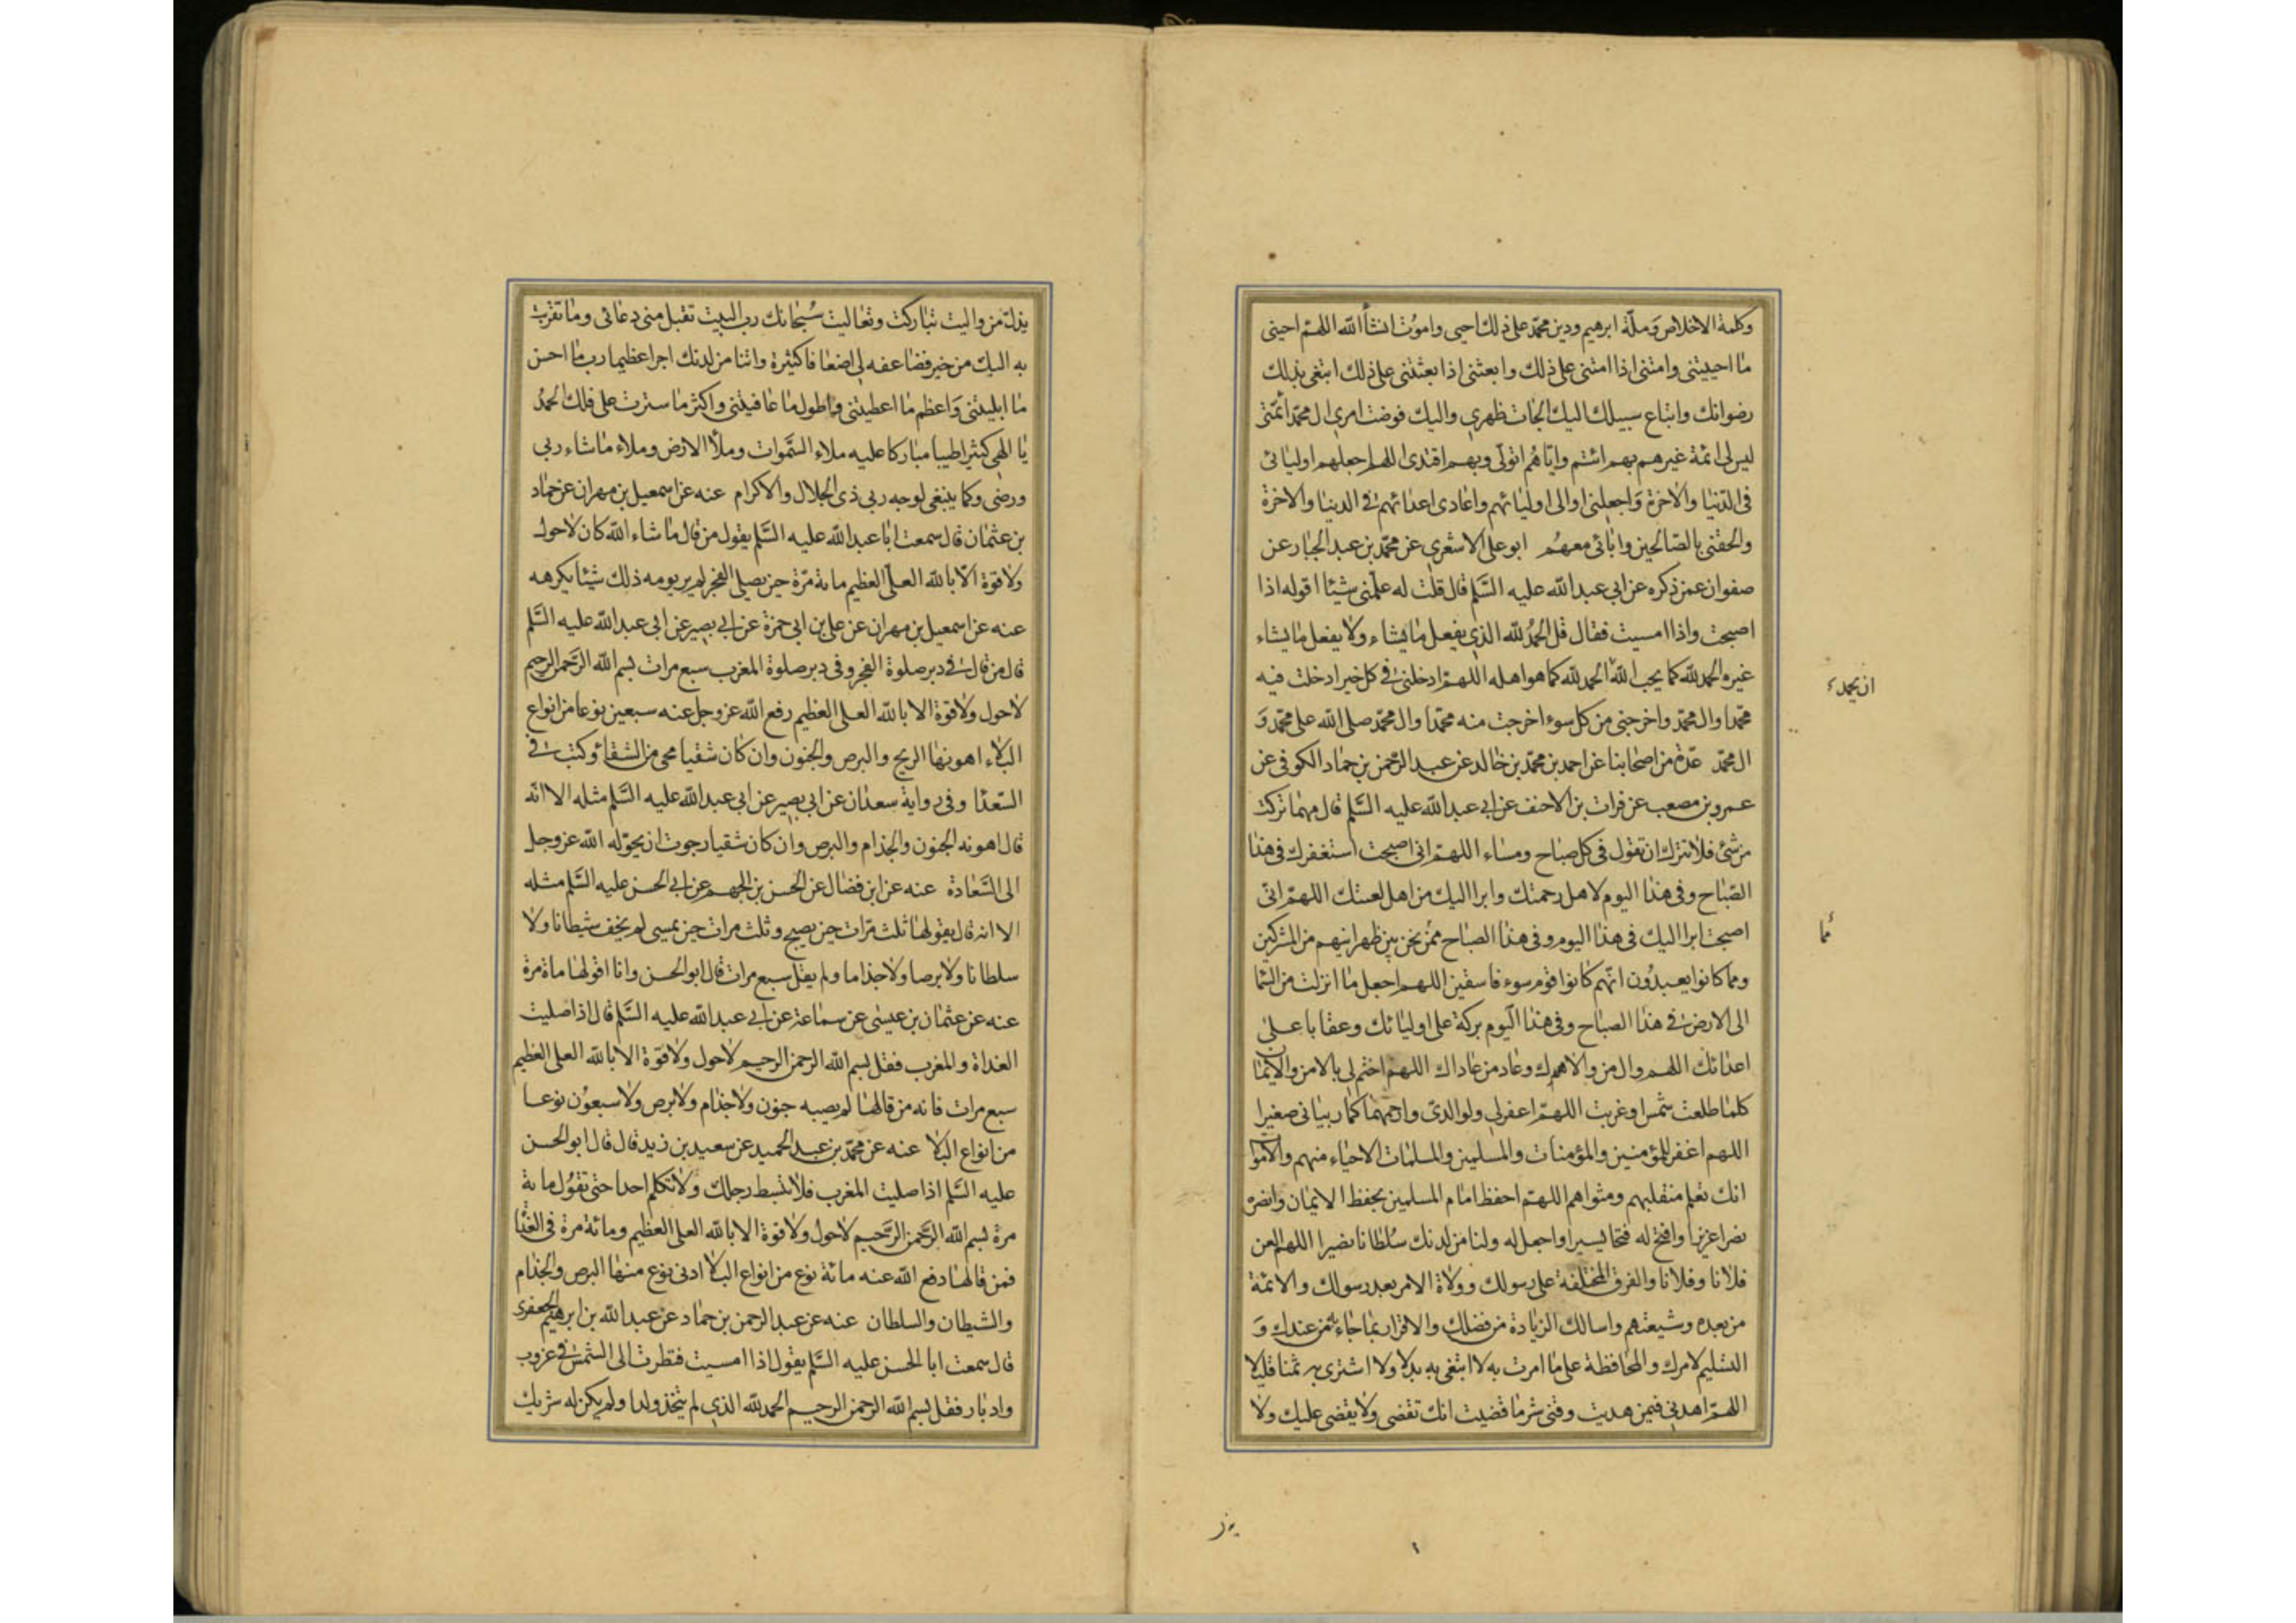 وكلمة الاخلاص وملّة ابرهيم ودين محمّد على ذلك احيى واموت انشأ الله اللهمّ احينى
ما احييتنى وامتنى اذا امتنى على ذلك وابعثنى اذا بعثتنى على ذلك ابتغى بذلك
رضوانك واتباع سبيلك اليك الجات ظهرى واليك فوضت امرى ال محمّد ائمّتى
ليس لى ائمة غيرهم بهم ائتم وايّاهم اتولّى وبهم اقتدى اللهم اجعلهم اوليائى
فى الدّنيا والاخرة واجعلنى اوالى اوليائهم واعادى اعدائهم فى الدنيا والاخرة
والحقنى بالصّالحين وابائى معهم ابو على الاشعرى عن محمّد بن عبد الجبار عن
صفوان عمن ذكره عن ابى عبد الله عليه السّلم قال قلت له علّمنى شيئا اقوله اذا
اصبحت واذا امسيت فقال قل الحمد لله الذى يفعل ما يشاء ولا يفعل ما يشاء
غيره الحمد لله كما يحب الله الحمد لله كما هو اهله اللهمّ ادخلنى فى كل خير ادخلت فيه
ان يحمد
محمّدا وال محمّد واخرجنى من كل سوء اخرجت منه محمّدا وال محمّد صلى الله على محمّد و
ال محمّد عدّة من اصحابنا عن احمد بن محمّد بن خالد عن عبد الرّحمن بن حماد الكوفى عن
عمرو بن مصعب عن فرات بن الاحنف عن ابى عبد الله عليه السّلم قال مهما تركت
من شئ فلا تترك ان تقول فى كل صباح ومساء اللهمّ انى اصبحت استغفرك فى هذا
الصّباح وفى هذا اليوم لاهل رحمتك وابرا اليك من اهل لعنتك اللهمّ انى
اصبحت ابرا اليك فى هذا اليوم وفى هذا الصباح ممّن نحن بين ظهرانيهم من المشركين
مما
ومما كانوا يعبدون انّهم كانوا قوم سوء فاسقين اللهم اجعل ما انزلت من السّما
الى الارض فى هذا الصباح وفى هذا اليوم بركة على اوليائك وعقابا على
اعدائك اللهم وال من والاك وعاد من عاداك اللهمّ اختم لى بالامن والايمان
كلما طلعت شمس او غربت اللهمّ اغفر لى ولوالدىّ وارحمهما كما ربيانى صغيرا
اللهم اغفر للمؤمنين والمؤمنات والمسلمين والمسلمات الاحياء منهم والاموات
انك تعلم منقلبهم ومثواهم اللهمّ احفظ امام المسلمين بحفظ الايمان وانصره
نصرا عزيزا وافتح له فتحا يسيرا واجعل له ولنا من لدنك سلطانا نصيرا اللهم العن
فلانا وفلانا والفرق المختلفة على رسولك وولاة الامر بعد رسولك والائمة
من بعده وشيعتهم واسالك الزيادة من فضلك والاقرار بما جاء به من عندك و
التسليم لامرك والمحافظة على ما امرت به لا ابتغى به بدلا ولا اشترى به ثمنا قليلا
اللهمّ اهدنى فيمن هديت وقنى شر ما قضيت انك تقضى ولا يقضى عليك ولا
يذل من واليت تباركت وتعاليت سبحانك رب البيت تقبل منى دعائى وما تقربت
به اليك من خير فضاعفه لى اضعافا كثيرة واتنا من لدنك اجرا عظيما رب ما احسن
ما ابليتنى واعظم ما اعطيتنى واطول ما عافيتنى واكثر ما سترت على فلك الحمد
يا الهى كثيرا طيبا مباركا عليه ملاء السّموات وملأ الارض وملاء ما شاء ربى
ورضى وكما ينبغى لوجه ربى ذى الجلال والاكرام عنه عن اسمعيل بن مهران عن حماد
بن عثمان قال سمعت ابا عبد الله عليه السّلم يقول من قال ما شاء الله كان لا حول
ولا قوة الّا بالله العلى العظيم مائة مرّة حين يصلى الفجر لم ير يومه ذلك شيئا يكرهه
عنه عن اسمعيل بن مهران عن على بن ابى حمزة عن ابى بصير عن ابى عبد الله عليه السّلم
قال من قال فى دبر صلوة الفجر وفى دبر صلوة المغرب سبع مرات بسم الله الرّحمن الرحيم
لا حول ولا قوة الا بالله العلى العظيم رفع الله عز وجل عنه سبعين نوعا من انواع
البلاء اهونها الريح والبرص والجنون وان كان شقيا محى من الشقاء وكتب فى
السّعدا وفى رواية سعدان عن ابى بصير عن ابى عبد الله عليه السّلم مثله الا انّه
قال اهونه الجنون والجذام والبرص وان كان شقيا رجوت ان يحوّله الله عز وجل
الى السّعادة عنه عن ابن فضال عن الحسن بن الجهم عن ابى الحسن عليه السّلم مثله
الا انه قال يقولها ثلث مرّات حين يصبح وثلث مرات حين يمسى لم يخف شيطانا ولا
سلطانا ولا برصا ولا جذاما ولم يقل سبع مرات قال ابو الحسن وانا اقولها ماة مرة
عنه عن عثمان بن عيسى عن سماعة عن ابى عبد الله عليه السّلم قال اذا صليت
الغداة والمغرب فقل بسم الله الرحمن الرحيم لا حول ولا قوة الا بالله العلى العظيم
سبع مرات فانه من قالها لم يصبه جنون ولا جذام ولا برص ولا سبعون نوعا
من انواع البلا عنه عن محمّد بن عبد الحميد عن سعيد بن زيد قال قال ابو الحسن
عليه السّلم اذا صليت المغرب فلا تبسط رجلك ولا تكلم احدا حتى تقول مائة
مرة بسم الله الرّحمن الرّحيم لا حول ولا قوة الا بالله العلى العظيم ومائة مرة فى الغداة
فمن قالها دفع الله عنه مائة نوع من انواع البلا ادنى نوع منها البرص والجذام
والشيطان والسلطان عنه عن عبد الرحمن بن حماد عن عبد الله بن ابرهيم الجعفرى
قال سمعت ابا الحسن عليه السّلم يقول اذا امسيت فنظرت الى الشمس فى غروب
وادبار فقل بسم الله الرحمن الرحيم الحمد لله الذى لم يتخذ ولدا ولم يكن له شريك